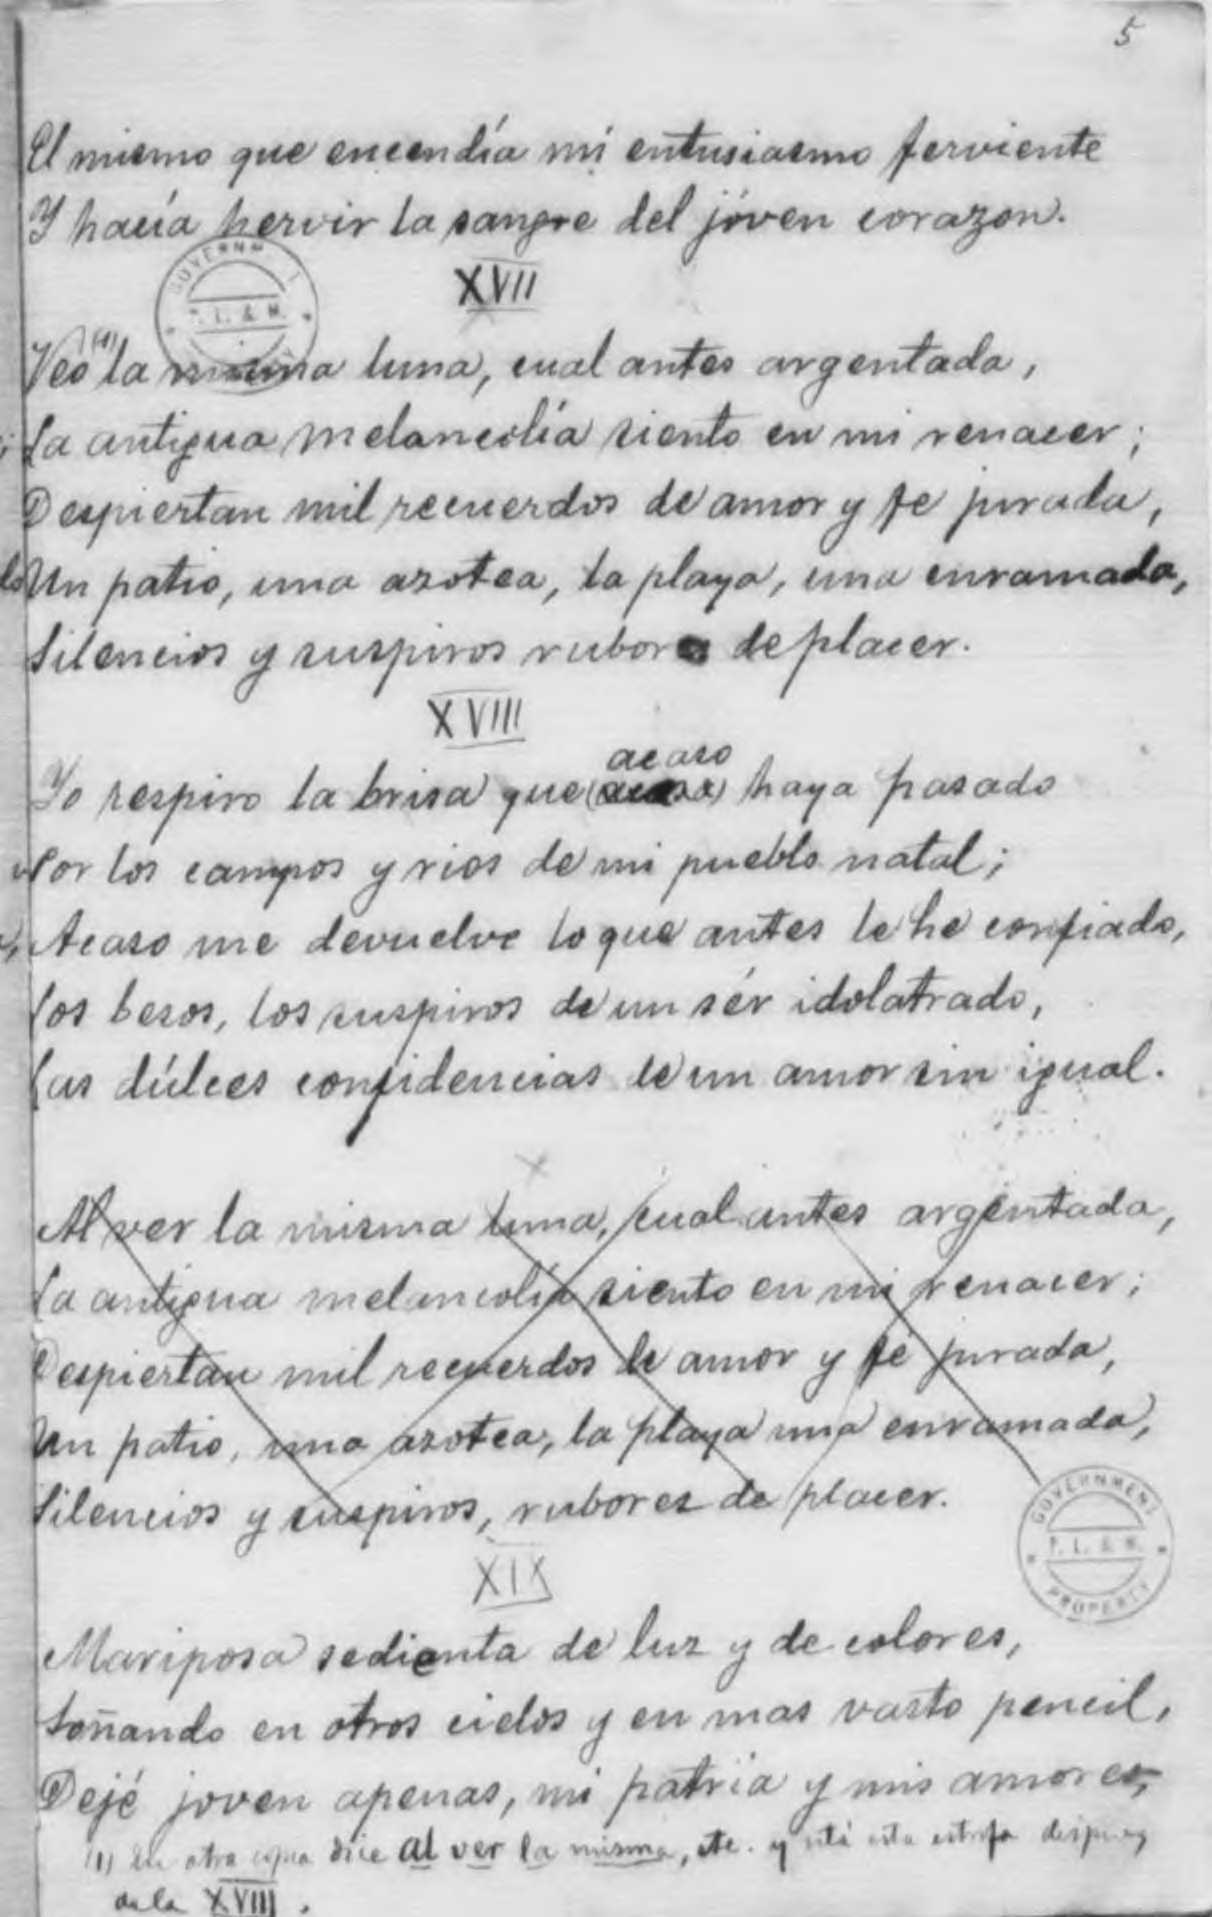 5
El mismo que encendía mi entusiasmo ferviente
Y hacía hervir la sangre del jóven corazon.
XVII
Veo (1) la misma luna, cual antes argentada,
La antigua melancolía siento en mi renacer;
Despiertan mil recuerdos de amor y fe jurada,
Un patio, una azotea, la playa, una enramada,
Silencios y suspiros rubores de placer.
XVIII
acaso
Yo respiro la brisa que (acaso) haya pasado
Por los campos y rios de mi pueblo natal;
Acaso me devuelve lo que antes le he confiado,
Los besos, los suspiros de un sér idolatrado,
Las dúlces confidencias de un amor sin igual.
Al ver la misma luna, cual antes argentada,
La antigua melancolía siento en mi renacer;
Despiertan mil recuerdos de amor y fe jurada,
Un patio, una azotea, la playa una enramada,
Silencios y suspiros, rubores de placer.
XIX
Mariposa sedienta de luz y de colores,
Soñando en otros cielos y en mas vasto pencil,
Dejé joven apenas, mi patria y mis amores,
(1) En otra copia dice al ver la misma, etc. y está esta estrofa despues
de la XVIII.
GOVERNMENT
P. L. & M.
PROPERTY